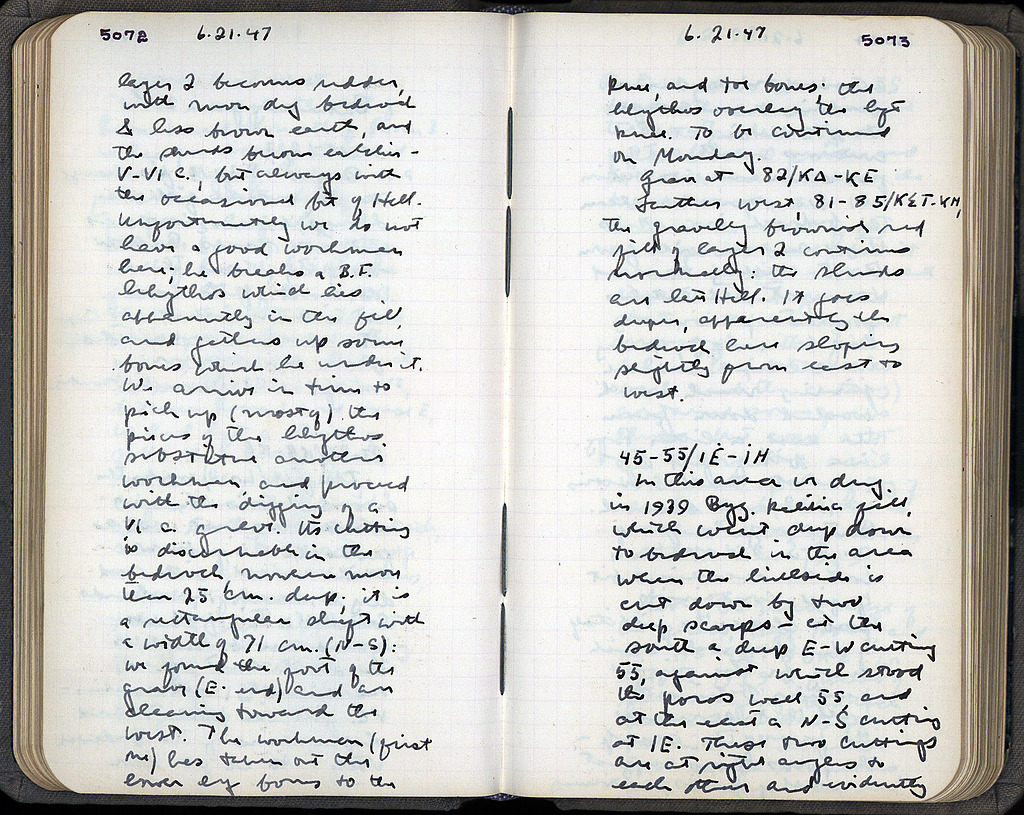 5072 6.21.47
layer 2 becomes redder,
with more dry bedrock
& less brown earth, and
the sherds become earlier -
V-VI c., but always with
the occasional bit of Hell.
Unfortunately we do not
have a good workman
here; he breaks a B.F.
lekythos which lies
apparently in the fill,
and gathers up some
bones which lie under it.
We arrive in time to
pick up (mostly) the
pieces of the lekythos,
substitute another
workman and proceed
with the digging of a
VI c. grave. Its cutting
is discernable in the
bedrock, nowhere more
than 25 cm. deep; it is
a rectangular shaft with
a width of 71 cm. (N-S):
we found the foot of the
grave (E. end) and are
cleaning toward the
west. The workman (first
one) has taken out the
lower leg bones to the
6.21.47 5073
knee, and toe bones; the
lekythos overlay the left
knee. To be continued
on Monday.
Grave at 82/ΚΔ-ΚΕ
Further west, 81-85/ΚΣΤ-ΚΗ,
the gravelly brownish red
fill of layer 2 continues
normally: the sherds
are late Hell. It goes
deeper, apparently the
bedrock here sloping
slightly from east to
west.
45-55/ΙΕ-ΙΗ
In this area we dug
in 1939 Byz. fill,
which went deep down
to bedrock in the area
where the hillside is
cut down by two
deep scarps - at the
south a deep E-W cutting
55, against which stood
the poros wall 55, and
at the east a N-S cutting
at ΙΕ. These two cuttings
are at right angles to
each other and evidently